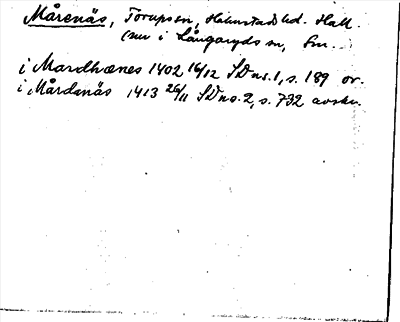 Mårenäs, Torups sn, Halmstads hd. Hall.
(nu i Långaryds sn, Sm.
i Mardhænes 1402 16/12 SD ns. 1, s. 189 or.
i Mårdanäs 1413 26/11 SD ns. 2, s. 732 avskr.